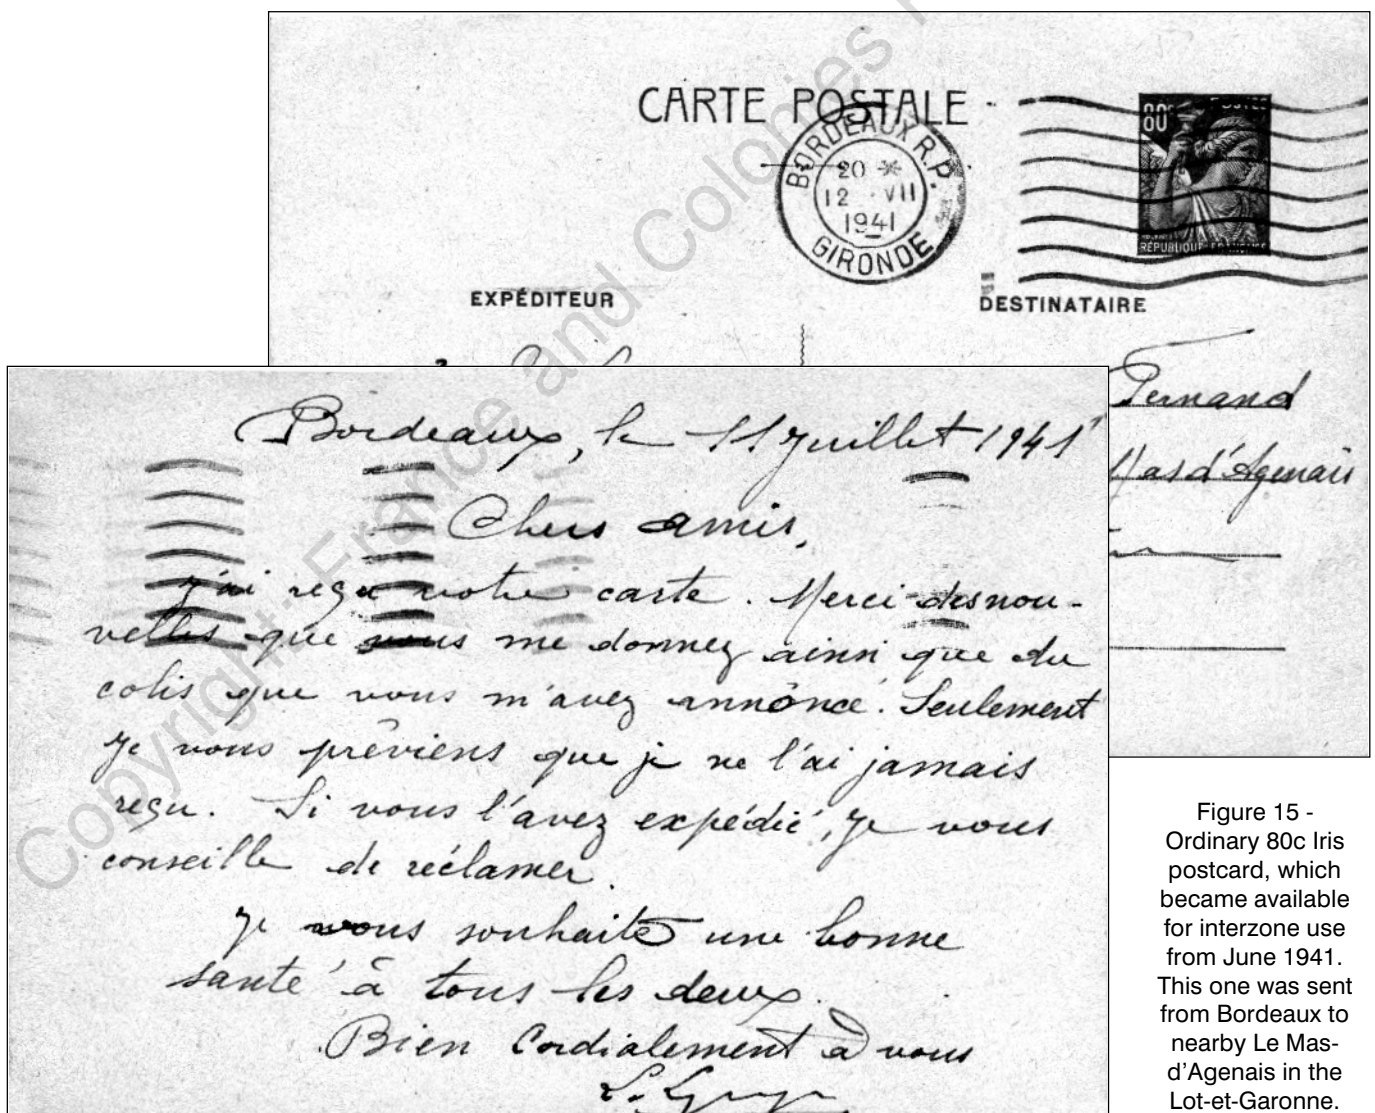 CARTE POSTALE
BORDEAUX R.P.
20 *
12 VII
1941
GIRONDE
80c POSTES
RÉPUBLIQUE FRANÇAISE
EXPÉDITEUR
DESTINATAIRE
Fernand
Mas d'Agenais
Bordeaux, le 11 Juillet 1941
Chers amis,
J'ai reçu votre carte. Merci des nou-
velles que vous me donnez ainsi que du
colis que vous m'avez annoncé. Seulement
je vous préviens que je ne l'ai jamais
reçu. Si vous l'avez expédié, je vous
conseille de réclamer.
Je vous souhaite une bonne
santé à tous les deux.
Bien Cordialement à vous
Figure 15 -
Ordinary 80c Iris
postcard, which
became available
for interzone use
from June 1941.
This one was sent
from Bordeaux to
nearby Le Mas-
d'Agenais in the
Lot-et-Garonne.
Copyright: France and Colonies